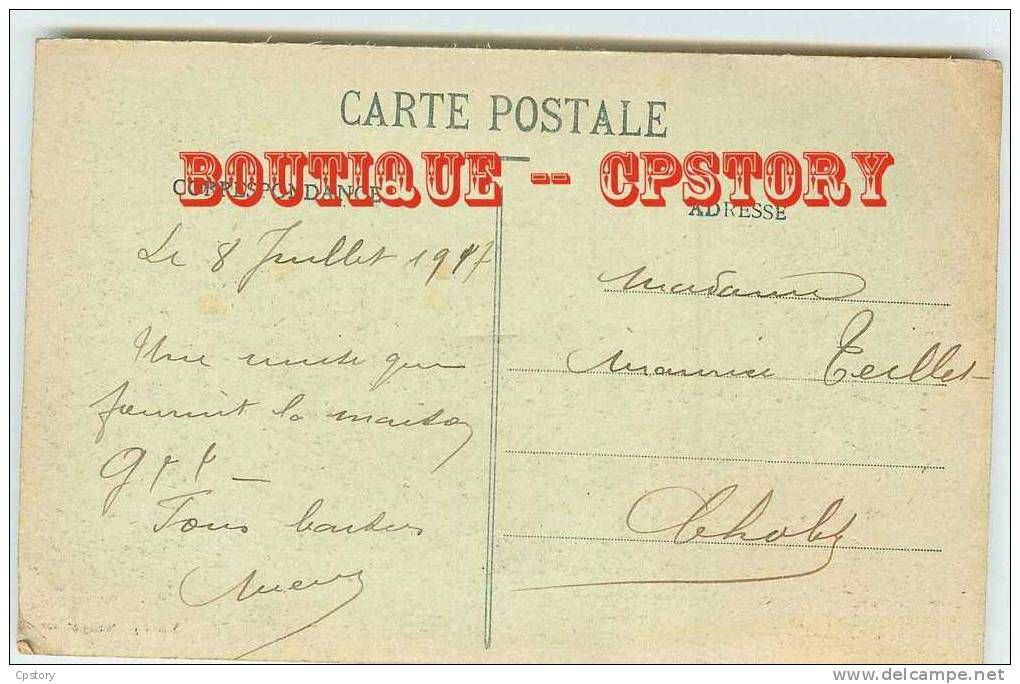 CARTE POSTALE
BOUTIQUE -- CPSTORY
CORRESPONDANCE
ADRESSE
Le 8 Juillet 1917
Une que
fournit la maison
Tous baisers
Madame
Maurice Teillet
Cpstory
delcampe.net